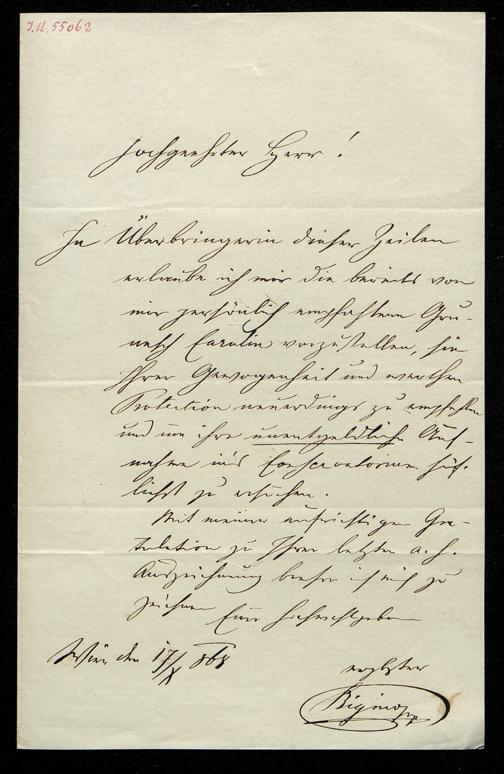 I.N. 55062
Hochgeehrter Herr!
In Überbringerin dieser Zeilen
erlaube ich mir die bereits von
mir persönlich empfohlene Gru-
nesch Carolin vorzustellen, sie
Ihrer Gewogenheit und werthen
Protection neuerdings zu empfehlen
und um ihre unentgeldliche Auf-
nahme in's Conservatorium höf-
lichst zu ersuchen.
Mit meiner aufrichtigen Gra-
tulation zu Ihrer letzten a. h.
Auszeichnung beehre ich mich zu
zeichnen Euer Hochwohlgeboren
Wien den 17/X 868
ergebster